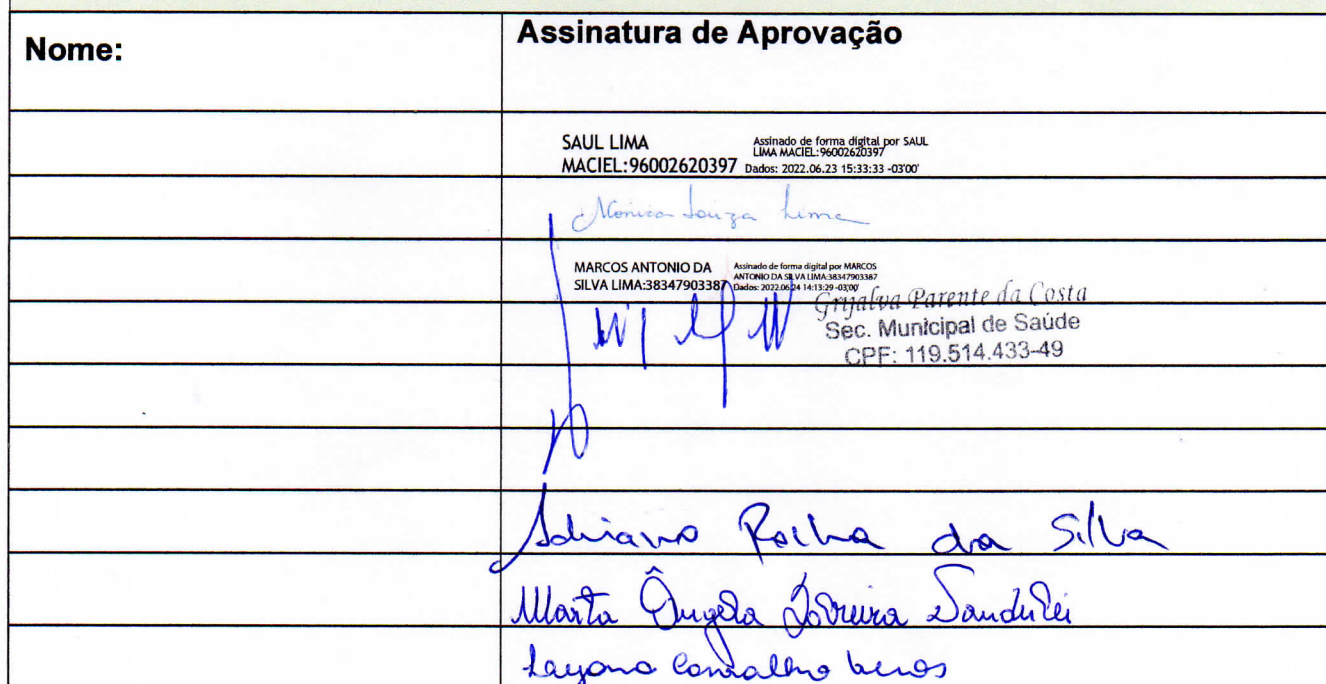 Nome:
Assinatura de Aprovação
SAUL LIMA
MACIEL:96002620397
Assinado de forma digital por SAUL
LIMA MACIEL:96002620397
Dados: 2022.06.23 15:33:33 -03'00'
Monica Souza Lima
MARCOS ANTONIO DA
SILVA LIMA:38347903387
Assinado de forma digital por MARCOS
ANTONIO DA SILVA LIMA:38347903387
Dados: 2022.06.24 14:13:29 -03'00'
Grijalva Parente da Costa
Sec. Municipal de Saúde
CPF: 119.514.433-49
Adriano Rocha da Silva
Marta Ângela
Layana Carvalho